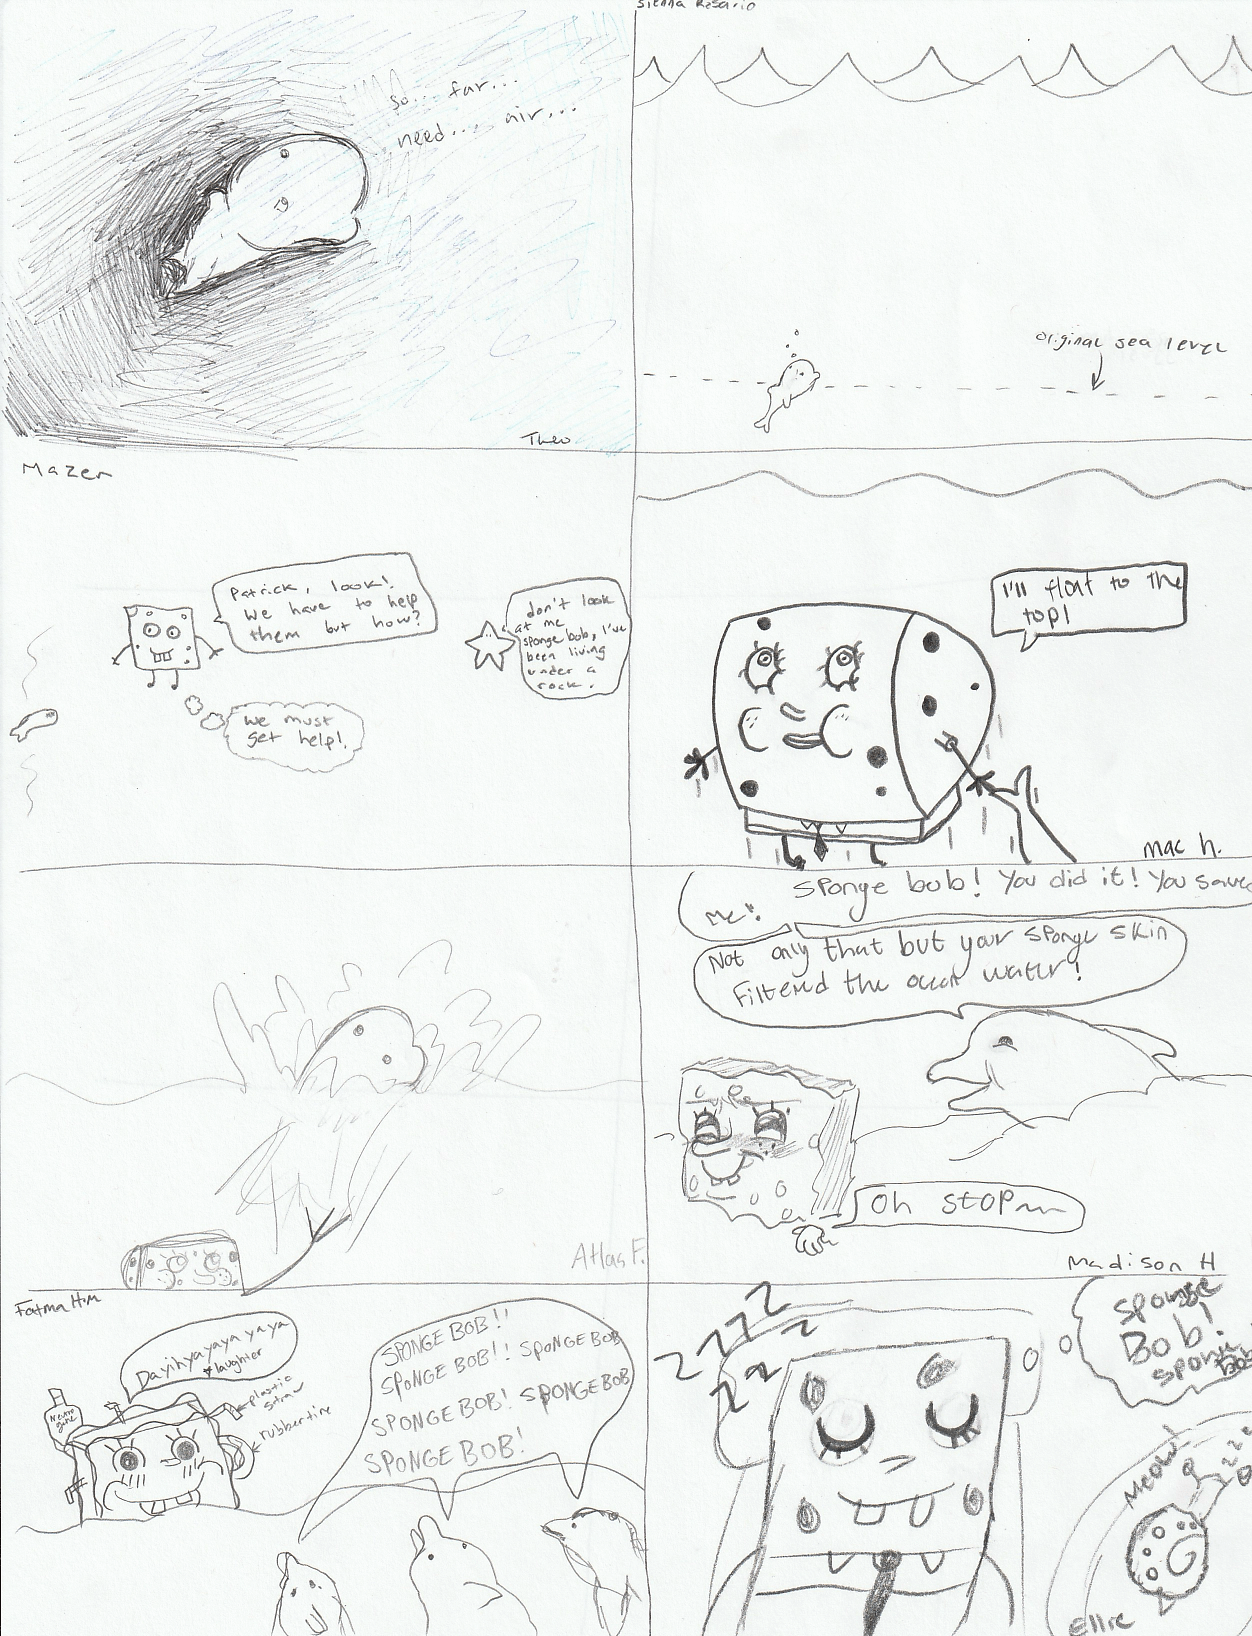 so... far...
need... air...
Theo
Sienna Rosario
original sea level
Mazer
Patrick, look!
We have to help
them but how?
we must
get help!
don't look
at me
sponge bob, I've
been living
under a
rock.
I'll float to the
top!
Mac h.
Atlas F.
Sponge bob! You did it! You saved
me!!
Not only that but your sponge skin
Filtered the ocean water!
Oh stop~~
Madison H
Fatma H.M
Dayihyayayayaya
laughter
plastic
straw
rubbertire
SPONGE BOB!!
SPONGE BOB!! SPONGE BOB
SPONGE BOB! SPONGE BOB
SPONGE BOB!
ZZZZ
Z
ZZZ
Sponge
Bob!
Sponge
Bob
Meow!
ZZZ
Ellie